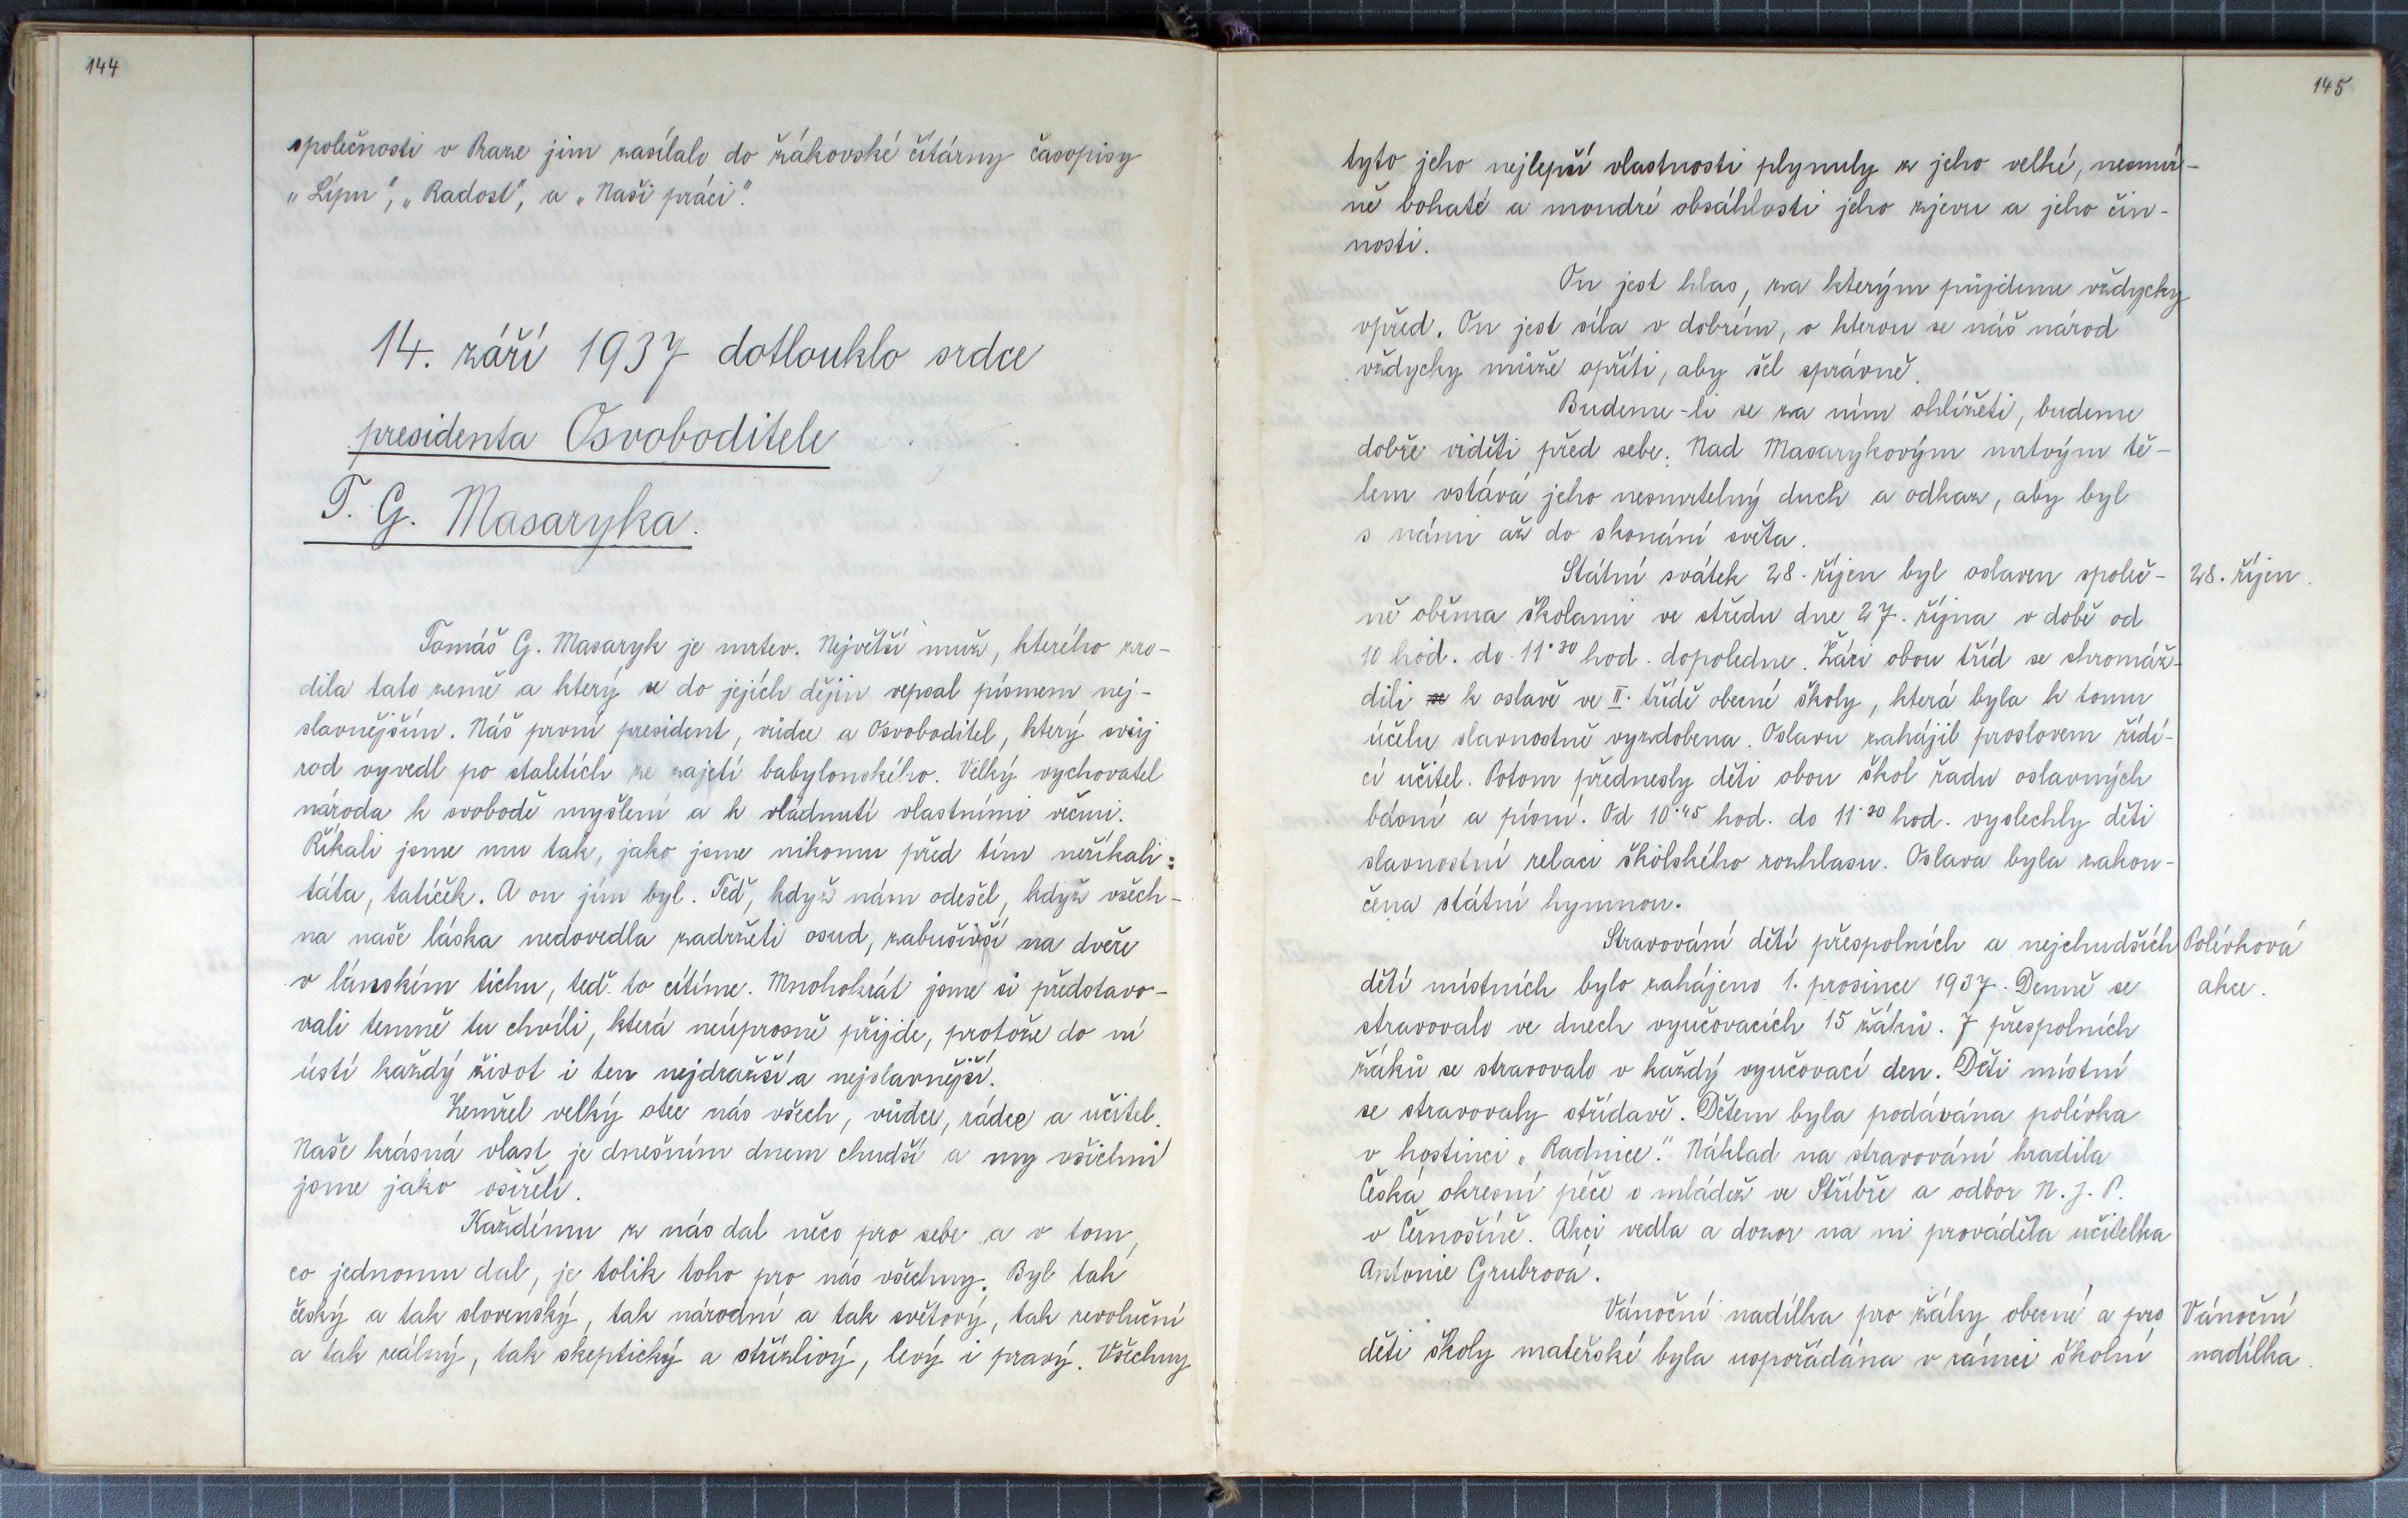 144
společnosti v Praze jim zasílalo do žákovské čítárny časopisy
„Lípu", „Radost", a „Naši práci".
14. září 1937 dotlouklo srdce
presidenta Osvoboditele
T. G. Masaryka.
Tomáš G. Masaryk je mrtev. Největší muž, kterého zro-
dila tato země a který se do jejích dějin vepsal písmem nej-
slavnějším. Náš první president, vůdce a Osvoboditel, který svůj
rod vyvedl po staletích ze zajetí babylonského. Velký vychovatel
národa k svobodě myšlení a k vládnutí vlastními věcmi.
Říkali jsme mu tak, jako jsme nikomu před tím neříkali:
táta, tatíček. A on jím byl. Teď, když nám odešel, když všech-
na naše láska nedovedla zadržeti osud, zabušivší na dveře
v lánském tichu, teď to cítíme. Mnohokrát jsme si představo-
vali temně tu chvíli, která neúprosně přijde, protože do ní
ústí každý život i ten nejdražší a nejslavnější.
Zemřel velký otec nás všech, vůdce, rádce a učitel.
Naše krásná vlast je dnešním dnem chudší a my všichni
jsme jako osiřelí.
Každému z nás dal něco pro sebe a v tom,
co jednomu dal, je tolik toho pro nás všechny. Byl tak
český a tak slovenský, tak národní a tak světový, tak revoluční
a tak reálný, tak skeptický a střízlivý, levý i pravý. Všechny
145
tyto jeho nejlepší vlastnosti plynuly z jeho velké, nesmír-
ně bohaté a moudré obsáhlosti jeho zjevu a jeho čin-
nosti.
On jest hlas, za kterým půjdeme vždycky
vpřed. On jest síla v dobrém, o kterou se náš národ
vždycky může opříti, aby šel správně.
Budeme-li se za ním ohlížeti, budeme
dobře viděti před sebe. Nad Masarykovým mrtvým tě-
lem vstává jeho nesmrtelný duch a odkaz, aby byl
s námi až do skonání světa.
Státní svátek 28. říjen byl oslaven společ-
ně oběma školami ve středu dne 27. října v době od
10 hod. do 11·30 hod. dopoledne. Žáci obou tříd se shromáž-
dili se k oslavě ve II. třídě obecné školy, která byla k tomu
účelu slavnostně vyzdobena. Oslavu zahájil proslovem řídí-
cí učitel. Potom přednesly děti obou škol řadu oslavných
básní a písní. Od 10·45 hod. do 11·30 hod. vyslechly děti
slavnostní relaci školského rozhlasu. Oslava byla zakon-
čena státní hymnou.
28. říjen.
Stravování dětí přespolních a nejchudších
dětí místních bylo zahájeno 1. prosince 1937. Denně se
stravovalo ve dnech vyučovacích 15 žáků. 7 přespolních
žáků se stravovalo v každý vyučovací den. Děti místní
se stravovaly střídavě. Dětem byla podávána polévka
v hostinci „Radnice". Náklad na stravování hradila
Česká okresní péče o mládež ve Stříbře a odbor N. J. P.
v Černošíně. Akci vedla a dozor na ni prováděla učitelka
Antonie Grubrová.
Polévková
akce.
Vánoční nadílka pro žáky obecné a pro
děti školy mateřské byla uspořádána v rámci školní
Vánoční
nadílka.